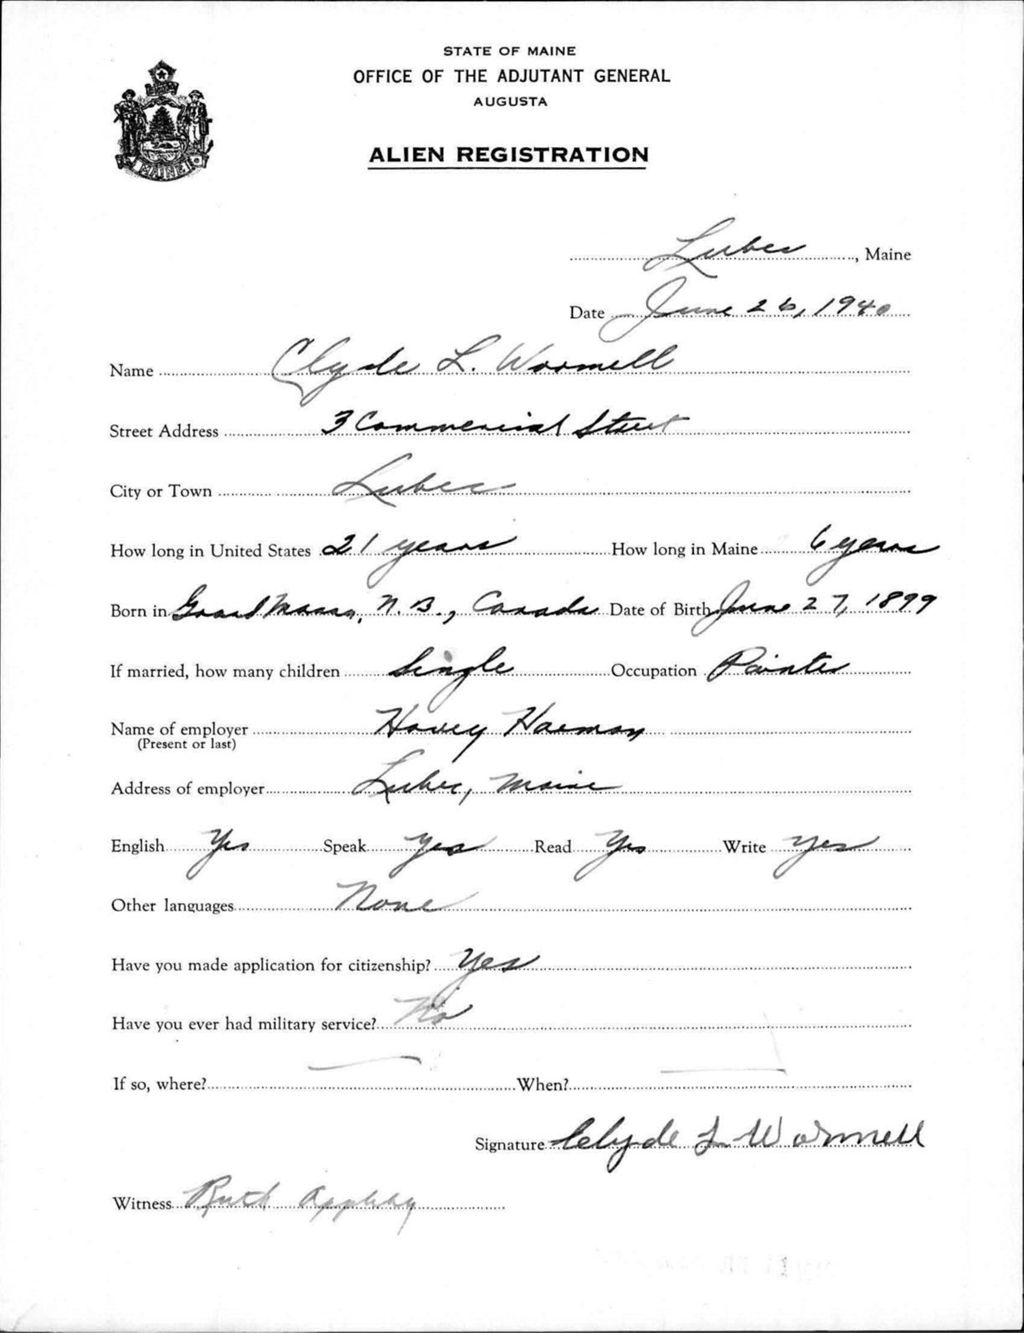 STATE OF MAINE
OFFICE OF THE ADJUTANT GENERAL
AUGUSTA
ALIEN REGISTRATION
MAINE
Lubec, Maine
Date June 26, 1940
Name Clyde L. Wormell
Street Address 3 Commercial Street
City or Town Lubec
How long in United States 21 years How long in Maine 6 years
Born in Grand Manan, N.B., Canada Date of Birth June 27, 1899
If married, how many children Single Occupation Painter
Name of employer Harmon
(Present or last)
Address of employer Lubec, Maine
English Yes Speak Yes Read Yes Write Yes
Other languages None
Have you made application for citizenship? Yes
Have you ever had military service? No
If so, where? When?
Signature Clyde L Wormell
Witness Ruth Appleby